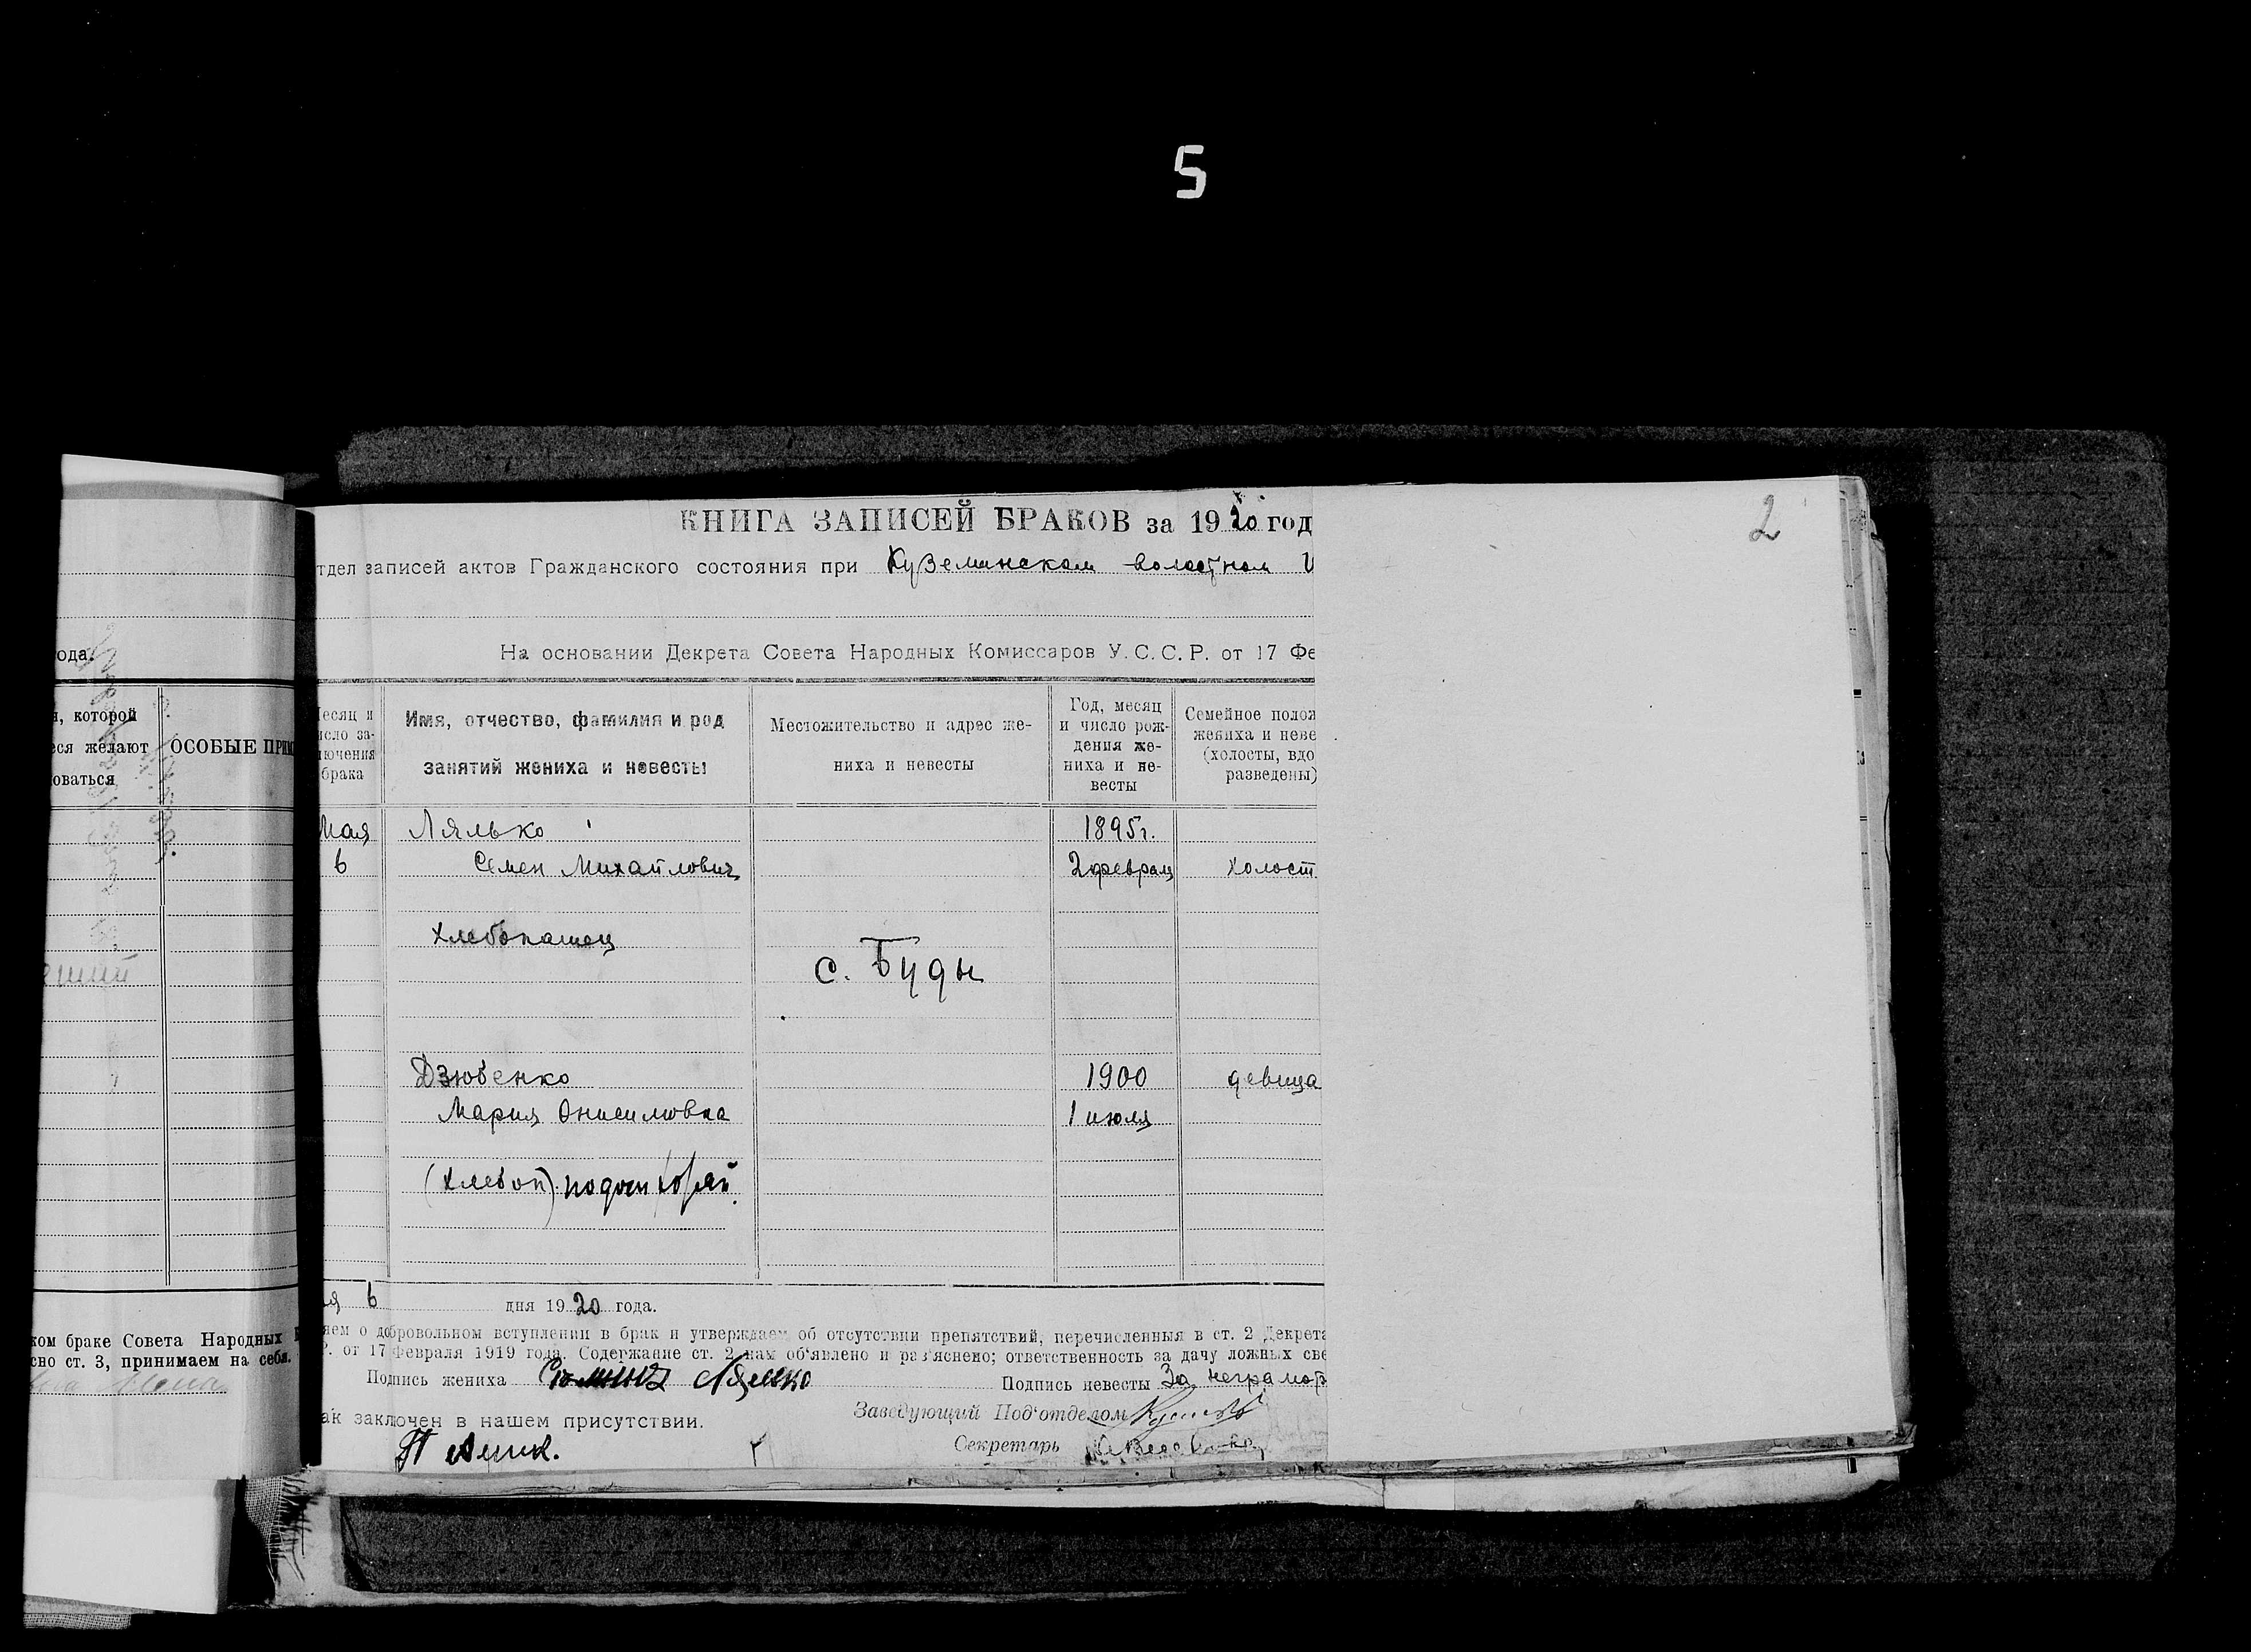 5
2
ода.
и, которой
еся желают
оваться
ОСОБЫЕ ПРИМ
ком браке Совета Народных
сно ст. 3, принимаем на себя.
КНИГА ЗАПИСЕЙ БРАКОВ за 1920 год
тдел записей актов Гражданского состояния при Куземинском волостном И
На основании Декрета Совета Народных Комиссаров У.С.С.Р. от 17 Фе
Месяц и
исло за-
лючения
брака
Имя, отчество, фамилия и род
занятий жениха и невесты
Местожительство и адрес же-
ниха и невесты
Год, месяц
и число рож-
дения же-
ниха и не-
весты
Семейное полож
жениха и неве
(холосты, вдо
разведены)
Мая Лялько 1895г.
6 Семен Михайлович 2 февраля холост
хлебопашец
с. Буды
Дзюбенко 1900 девица
Мария Онисимовна 1 июля
(хлебоп)
ня 6 дня 1920 года.
яем о добровольном вступлении в брак и утверждаем об отсутствии препятствий, перечисленныя в ст. 2 Декрета
Р. от 17 февраля 1919 года. Содержание ст. 2 нам об'явлено и раз'яснено; ответственность за дачу ложных све
Подпись жениха Лялько Подпись невесты За неграмот
Заведующий Под'отделом
ак заключен в нашем присутствии.
Секретарь